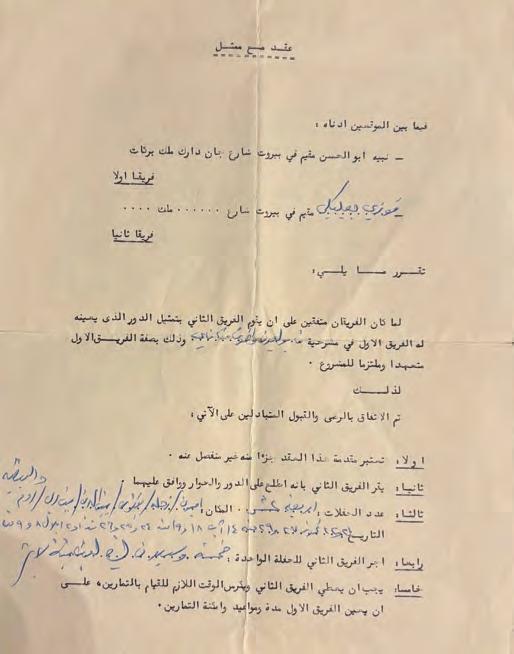 عقد مع ممثل
فيما بين الموقعين ادناه :
– نبيه ابو الحسن مقيم في بيروت شارع جان دارك ملك بركات
فريقا اولا
فوزي بعلبكي مقيم في بيروت شارع ...... ملك ....
فريقا ثانيا
تقرر مــا يلــي :
لما كان الفريقان متفقين على ان يقوم الفريق الثاني بتمثيل الدور الذى يعينه
له الفريق الاول في مسرحية وذلك بصفة الفريق الاول
متعهدا وملتزما للمشروع .
لذلــك
تم الاتفاق بالرضى والقبول المتبادلين على الآتي :
اولا : تعتبر مقدمة هذا العقد جزءا منه غير منفصل عنه .
ثانيا : يقر الفريق الثاني بانه اطلع على الدور والحوار ووافق عليهما .
ثالثا : عدد الحفلات : المكان :
التاريخ
رابعا : اجر الفريق الثاني للحفلة الواحدة : خمسة وسبعين
خامسا : يجب ان يعطي الفريق الثاني ويكرس الوقت اللازم للقيام بالتمارين ، علــى
ان يعين الفريق الاول مدة ومواعيد وامكنة التمارين .